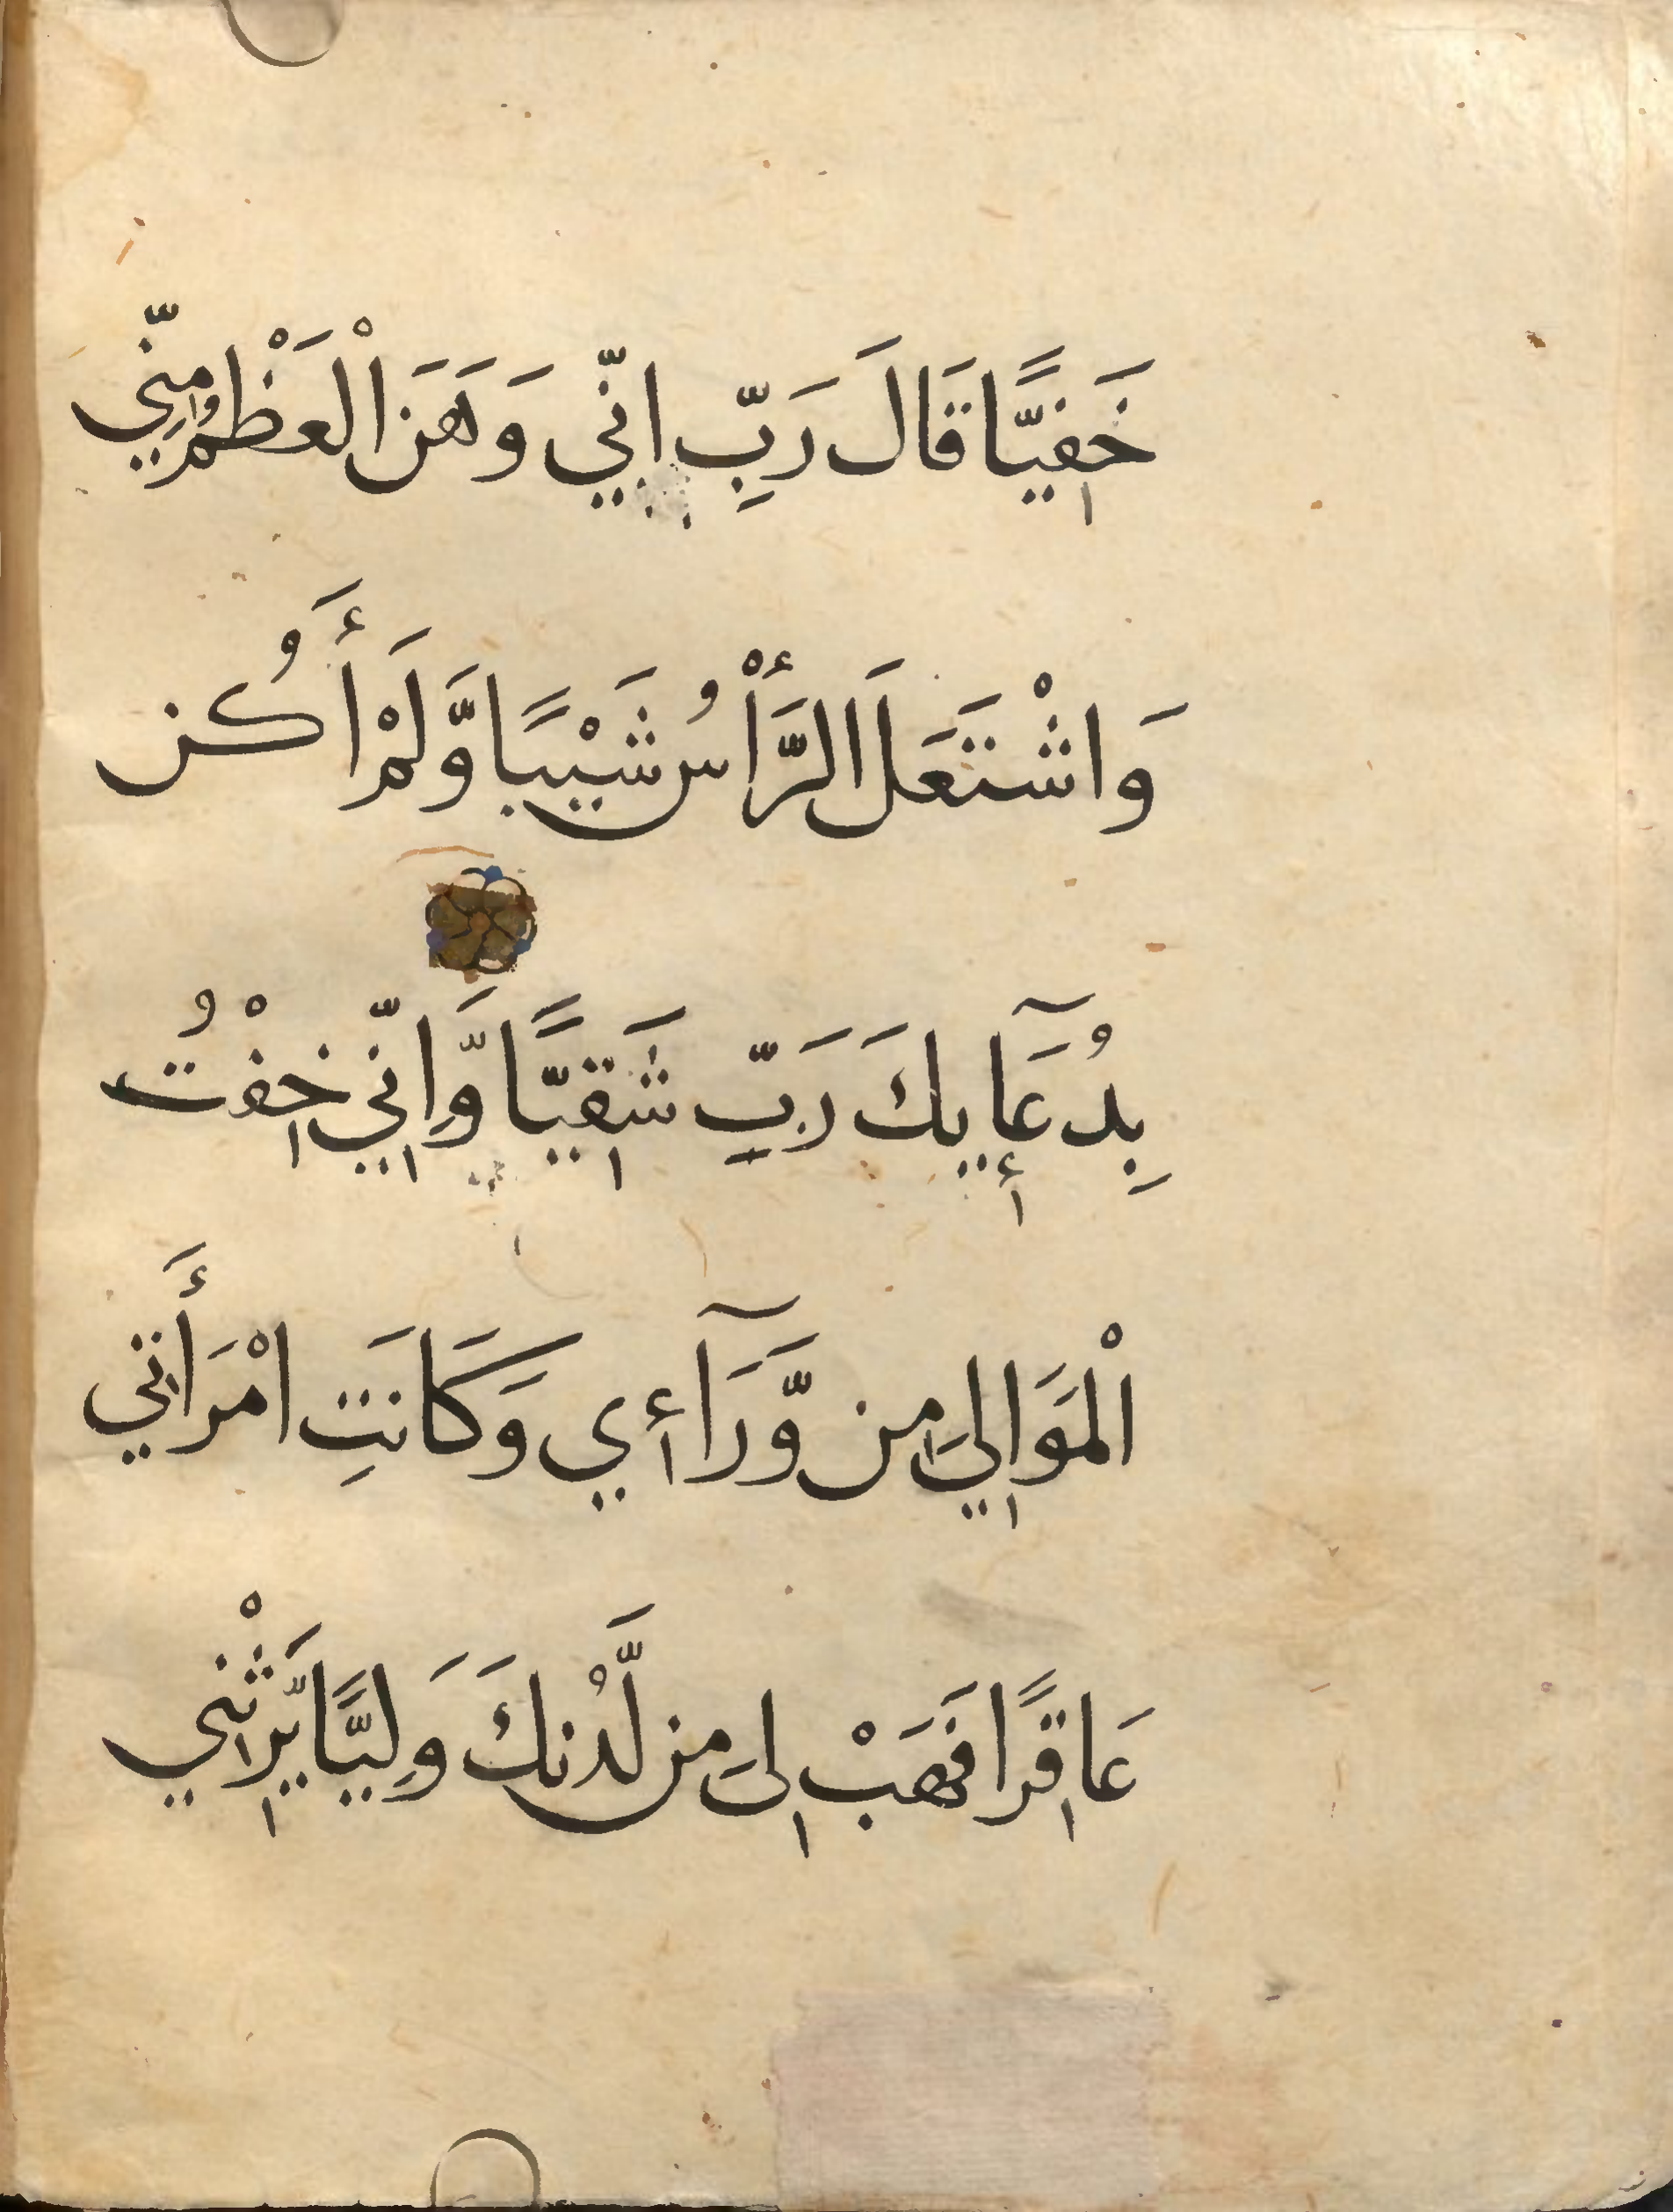 خَفِيًّا قَالَ رَبِّ اِنِّي وَهَنَ الْعَظْمُ مِنِّي
وَاشْتَعَلَ الرَّأْسُ شَيْبًا وَّلَمْ أَكُن
بِدُعَآيِٕكَ رَبِّ شَقِيًّا وَّاِنِّي خِفْتُ
الْمَوَالِيَ مِن وَّرَآءِي وَكَانَتِ امْرَأَتِي
عَاقِرًا فَهَبْ لِى مِن لَّدُنكَ وَلِيًّا يَّرِثْنِي